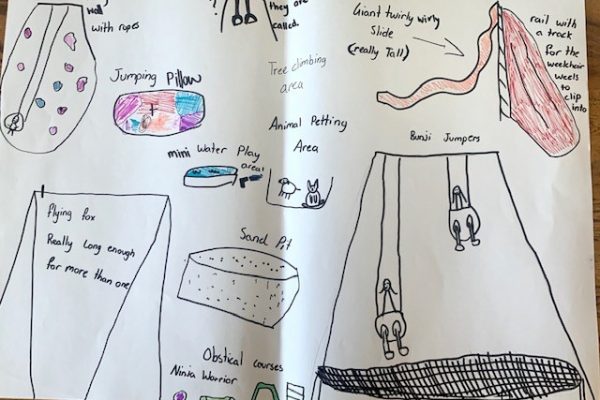 wall
with ropes
they are
called.
Giant twirly wirly
Slide
(really Tall)
rail with
a track
for the
weelchair
weels
to
clip
into
Jumping Pillow
Tree climbing
area
Animal Petting
Area
mini Water Play
area!
Bunji Jumpers
flying fox
Really long enough
for more than one
Sand Pit
Obstical courses
Ninja Warrior